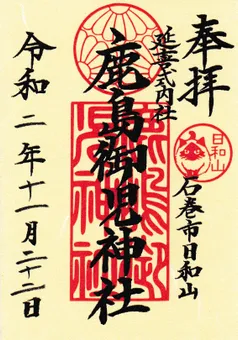 奉拝
石巻市日和山
日和山
延喜式内社
鹿島御児神社
令和二年十一月二十二日